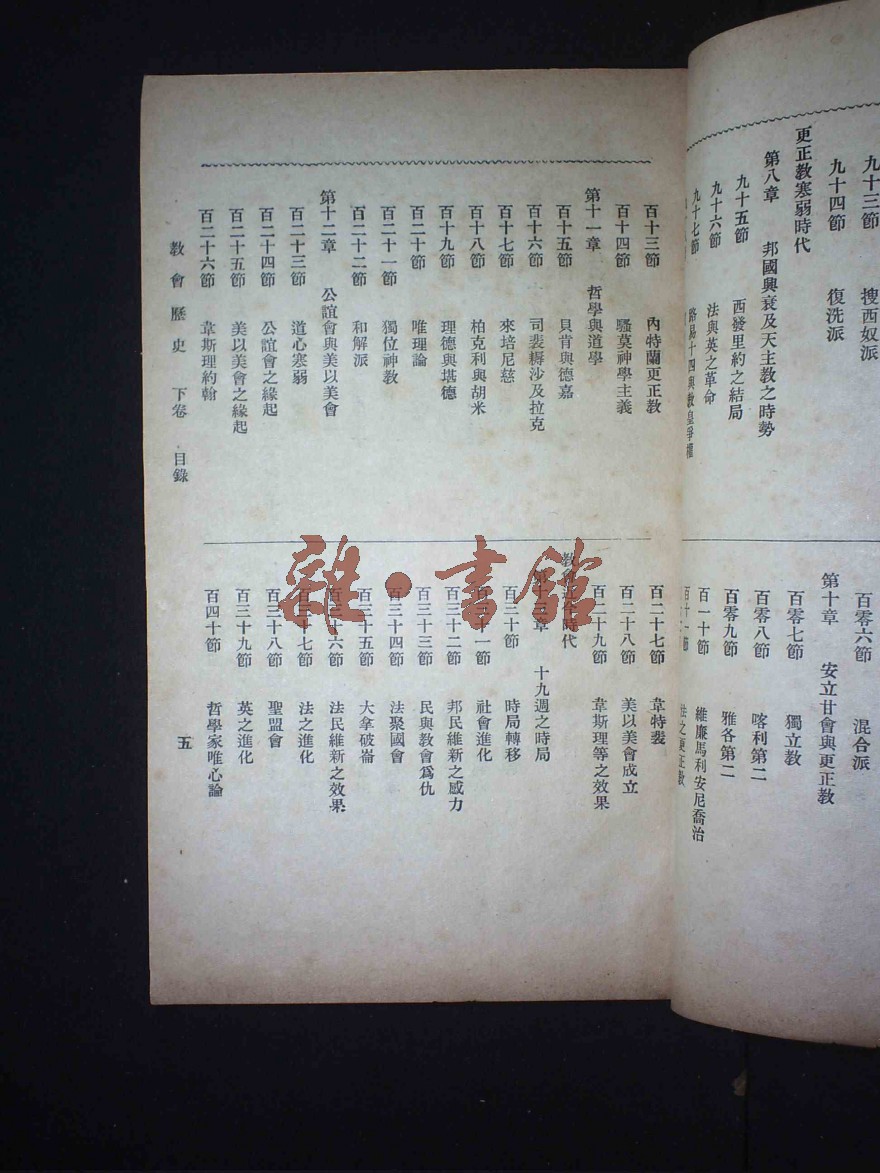 九十三節 搜西奴派
九十四節 復洗派
更正教塞弱時代
第八章 邦國興衰及天主教之時勢
九十五節 西發里約之結局
九十六節 法與英之革命
九十七節 路易十四與教皇爭權
百零六節 混合派
第十章 安立甘會與更正教
百零七節 獨立教
百零八節 喀利第二
百零九節 雅各第二
百一十節 維廉馬利安尼喬治
百十一節 法之更正教
百十三節 內特蘭更正教
百十四節 騷莫神學主義
第十一章 哲學與道學
百十五節 貝肯與德嘉
百十六節 司裴耨沙及拉克
百十七節 來培尼慈
百十八節 柏克利與胡米
百十九節 理德與堪德
百二十節 唯理論
百二十一節 獨位神教
百二十二節 和解派
第十二章 公誼會與美以美會
百二十三節 道心塞弱
百二十四節 公誼會之緣起
百二十五節 美以美會之緣起
百二十六節 韋斯理約翰
百二十七節 韋特裴
百二十八節 美以美會成立
百二十九節 韋斯理等之效果
教會 時代
第十三章 十九週之時局
百三十節 時局轉移
百三十一節 社會進化
百三十二節 邦民維新之感力
百三十三節 民與教會爲仇
百三十四節 法聚國會
百三十五節 大拿破崙
百三十六節 法民維新之效果
百三十七節 法之進化
百三十八節 聖盟會
百三十九節 英之進化
百四十節 哲學家唯心論
教會歷史 下卷 目錄
五
雜·書館